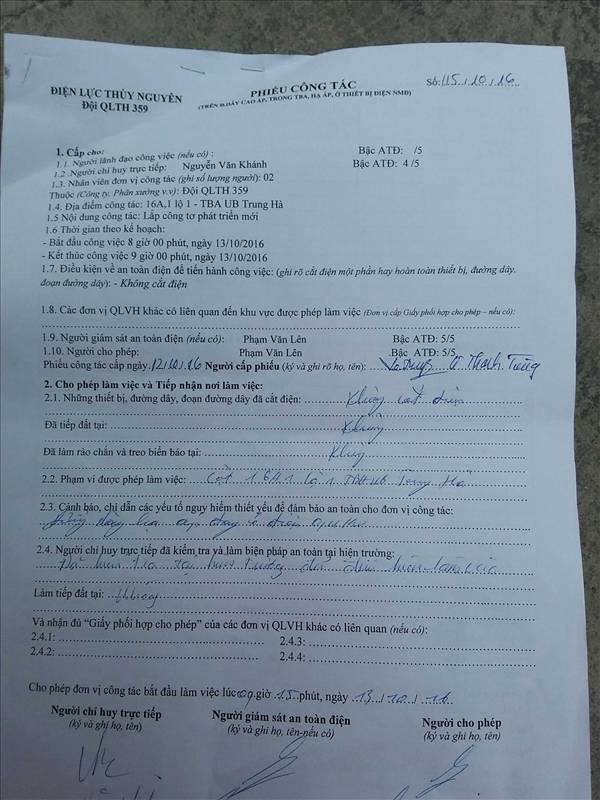 ĐIỆN LỰC THỦY NGUYÊN
Đội QLTH 359
PHIẾU CÔNG TÁC
(TRÊN Đ.DÂY CAO ÁP, TRONG TBA, HẠ ÁP, Ở THIẾT BỊ ĐIỆN NMĐ)
Số: 115/10/16
1. Cấp cho:
1.1. Người lãnh đạo công việc (nếu có) : Bậc ATĐ: /5
1.2 .Người chỉ huy trực tiếp: Nguyễn Văn Khánh Bậc ATĐ: 4 /5
1.3. Nhân viên đơn vị công tác (ghi số lượng người): 02
Thuộc (Công ty, Phân xưởng v.v): Đội QLTH 359
1.4. Địa điểm công tác: 16A,1 lộ 1 - TBA UB Trung Hà
1.5 Nội dung công tác: Lắp công tơ phát triển mới
1.6 Thời gian theo kế hoạch:
- Bắt đầu công việc 8 giờ 00 phút, ngày 13/10/2016
- Kết thúc công việc 9 giờ 00 phút, ngày 13/10/2016
1.7. Điều kiện về an toàn điện để tiến hành công việc: (ghi rõ cắt điện một phần hay hoàn toàn thiết bị, đường dây,
đoạn đường dây): - Không cắt điện
1.8. Các đơn vị QLVH khác có liên quan đến khu vực được phép làm việc (Đơn vị cấp Giấy phối hợp cho phép – nếu có):
1.9. Người giám sát an toàn điện (nếu có): Phạm Văn Lên Bậc ATĐ: 5/5
1.10. Người cho phép: Phạm Văn Lên Bậc ATĐ: 5/5
Phiếu công tác cấp ngày 12/10/16 Người cấp phiếu (ký và ghi rõ họ, tên): Thanh Tùng
2. Cho phép làm việc và Tiếp nhận nơi làm việc:
2.1. Những thiết bị, đường dây, đoạn đường dây đã cắt điện: Không cắt điện
Đã tiếp đất tại: Không
Đã làm rào chắn và treo biển báo tại: Không
2.2. Phạm vi được phép làm việc: Cột 16A.1 lộ 1 TBA UB Trung Hà
2.3. Cảnh báo, chỉ dẫn các yếu tố nguy hiểm thiết yếu để đảm bảo an toàn cho đơn vị công tác:
Đường dây hạ áp đang có điện
2.4. Người chỉ huy trực tiếp đã kiểm tra và làm biện pháp an toàn tại hiện trường:
Đã kiểm tra tại hiện trường đủ điều kiện làm việc
Làm tiếp đất tại: Không
Và nhận đủ “Giấy phối hợp cho phép” của các đơn vị QLVH khác có liên quan (nếu có):
2.4.1: 2.4.3:
2.4.2: 2.4.4:
Cho phép đơn vị công tác bắt đầu làm việc lúc 09 giờ 15 phút, ngày 13/10/16
Người chỉ huy trực tiếp Người giám sát an toàn điện Người cho phép
(ký và ghi họ, tên) (ký và ghi họ, tên-nếu có) (ký và ghi họ, tên)